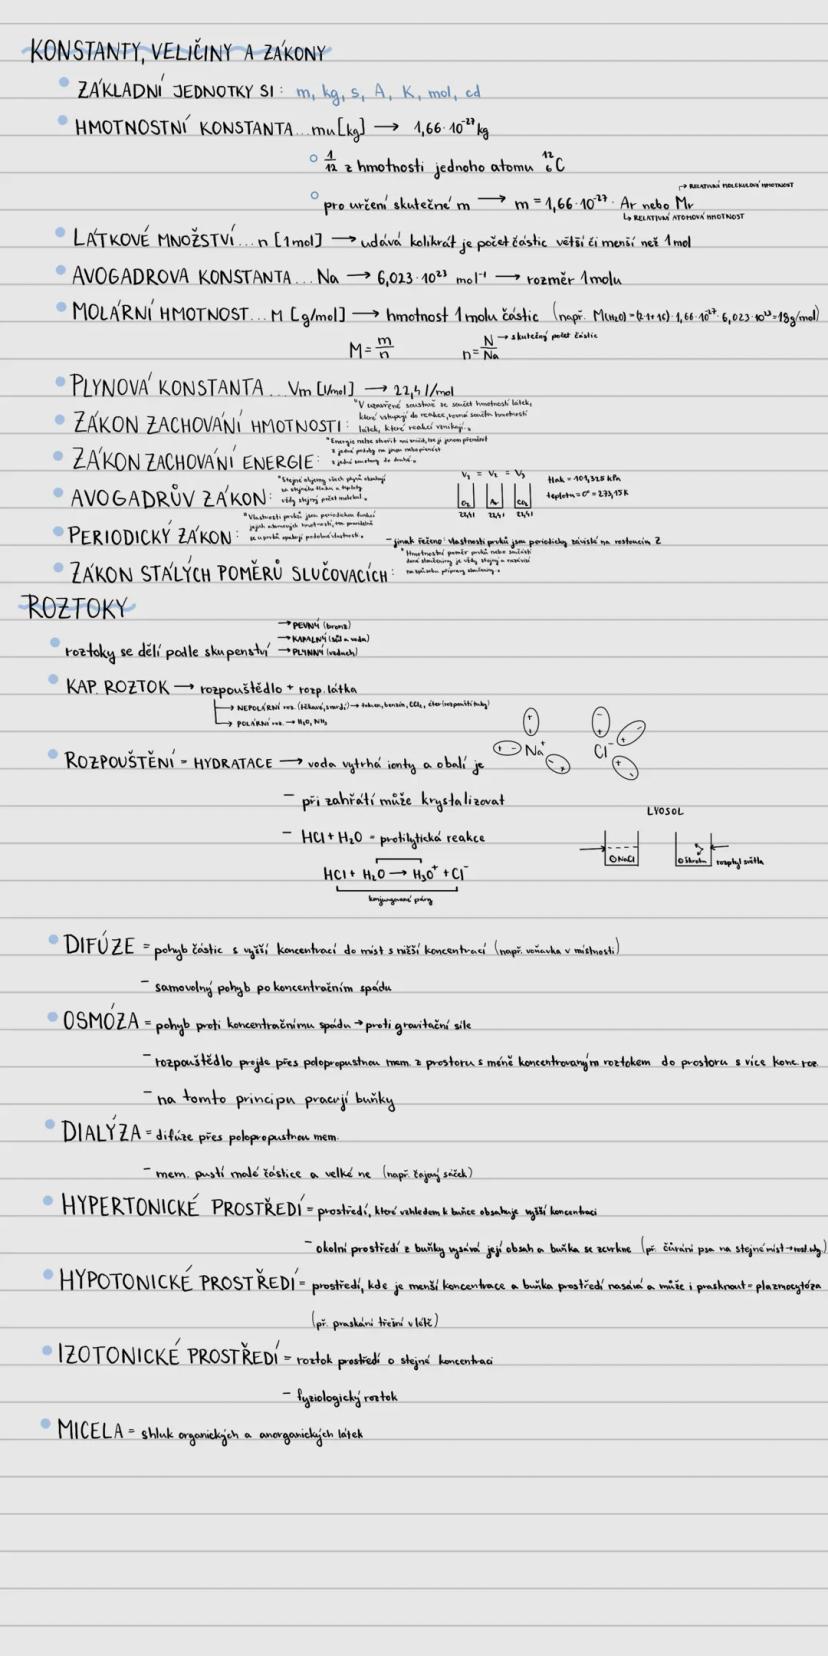 KONSTANTY, VELIČINY A ZÁKONY
ZÁKLADNÍ JEDNOTKY SI: m, kg, s, A, K, mol, cd
HMOTNOSTNÍ KONSTANTA...mu[kg] → 1,66·10⁻²⁷ kg
1/12 z hmotnosti jednoho atomu ¹²₆C
→ RELATIVNÍ MOLEKULOVÁ HMOTNOST
pro určení skutečné m → m = 1,66·10⁻²⁷· Ar nebo Mr
↳ RELATIVNÍ ATOMOVÁ HMOTNOST
LÁTKOVÉ MNOŽSTVÍ...n [1mol] → udává kolikrát je počet částic větší či menší než 1 mol
AVOGADROVA KONSTANTA...Na → 6,023·10²³ mol⁻¹ → rozměr 1molu
MOLÁRNÍ HMOTNOST...M [g/mol] → hmotnost 1 molu částic (např. M(H₂O)=(2·1+16)·1,66·10⁻²⁷·6,023·10²³=18g/mol)
M = m/n n = N/Na → skutečný počet částic
PLYNOVÁ KONSTANTA...Vm [l/mol] → 22,4 l/mol
"V uzavřené soustavě se součet hmotností látek,
které vstupují do reakce, rovná součtu hmotností
ZÁKON ZACHOVÁNÍ HMOTNOSTI: látek, které reakcí vznikají."
"Energie nelze stvořit ani zničit, lze ji jenom přeměnit
z jedné podoby na jinou nebo přenést
ZÁKON ZACHOVÁNÍ ENERGIE: z jedné soustavy do druhé."
"Stejné objemy všech plynů obsahují
za stejného tlaku a teploty
AVOGADRŮV ZÁKON: vždy stejný počet molekul."
V₁ = V₂ = V₃
O₂ Ar CO₂
22,4 l 22,4 l 22,4 l
tlak = 101,325 kPa
teplota = 0° = 273,15K
"Vlastnosti prvků jsou periodickou funkcí
jejich atomových hmotností,
PERIODICKÝ ZÁKON: se u prvků opakují podobné vlastnosti."
- jinak řečeno: vlastnosti prvků jsou periodicky závislé na rostoucím Z
"Hmotnostní poměr prvků nebo součástí
dané sloučeniny je vždy stejný a nezávisí
ZÁKON STÁLÝCH POMĚRŮ SLUČOVACÍCH: na způsobu přípravy sloučeniny."
ROZTOKY
→ PEVNÝ (bronz)
→ KAPALNÝ (sůl a voda)
roztoky se dělí podle skupenství → PLYNNÝ (vzduch)
KAP. ROZTOK → rozpouštědlo + rozp. látka
→ NEPOLÁRNÍ roz. (těkavé, smrdí) → toluen, benzín, CCl₄, éter (rozpouští tuky)
→ POLÁRNÍ roz. → H₂O, NH₃
Na⁺ Cl⁻
ROZPOUŠTĚNÍ = HYDRATACE → voda vytrhá ionty a obalí je
- při zahřátí může krystalizovat
LYOSOL
- HCl + H₂O = protilytická reakce
NaCl škrob rozptyl světla
HCl + H₂O → H₃O⁺ + Cl⁻
konjungované páry
DIFÚZE = pohyb částic s vyšší koncentrací do míst s nižší koncentrací (např. voňavka v místnosti)
- samovolný pohyb po koncentračním spádu
OSMÓZA = pohyb proti koncentračnímu spádu → proti gravitační síle
- rozpouštědlo projde přes polopropustnou mem. z prostoru s méně koncentrovaným roztokem do prostoru s více konc. roz.
- na tomto principu pracují buňky
DIALÝZA = difúze přes polopropustnou mem.
- mem. pustí malé částice a velké ne (např. čajový sáček)
HYPERTONICKÉ PROSTŘEDÍ = prostředí, které vzhledem k buňce obsahuje vyšší koncentraci
- okolní prostředí z buňky vysává její obsah a buňka se scvrkne (př. čůrání psa na stejné míst →
HYPOTONICKÉ PROSTŘEDÍ = prostředí, kde je menší koncentrace a buňka prostředí nasává a může i prasknout = plazmocytóza
(př. praskání třešní v létě)
IZOTONICKÉ PROSTŘEDÍ = roztok prostředí o stejné koncentraci
- fyziologický roztok
MICELA = shluk organických a anorganických látek